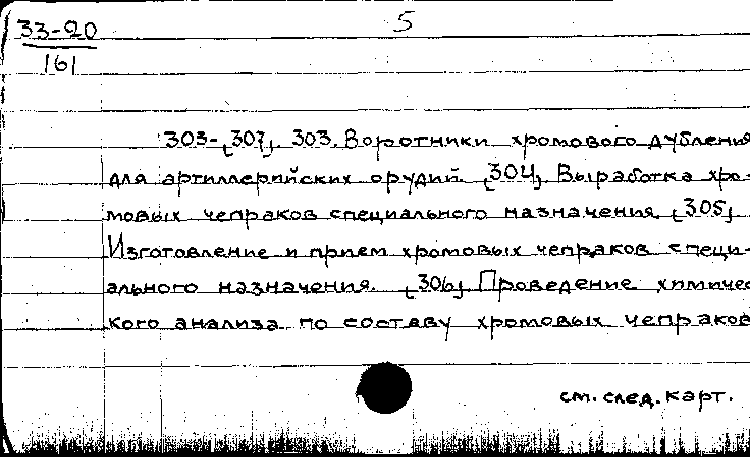 33-20
161
5
303-[307]. 303. Воротники хромового дубления
для артиллерийских орудий. [304]. Выработка хро-
мовых чепраков специального назначения. [305].
Изготовление и прием хромовых чепраков специ-
ального назначения. [306]. Проведение химичес
кого анализа по составу хромовых чепраков
см. след. карт.